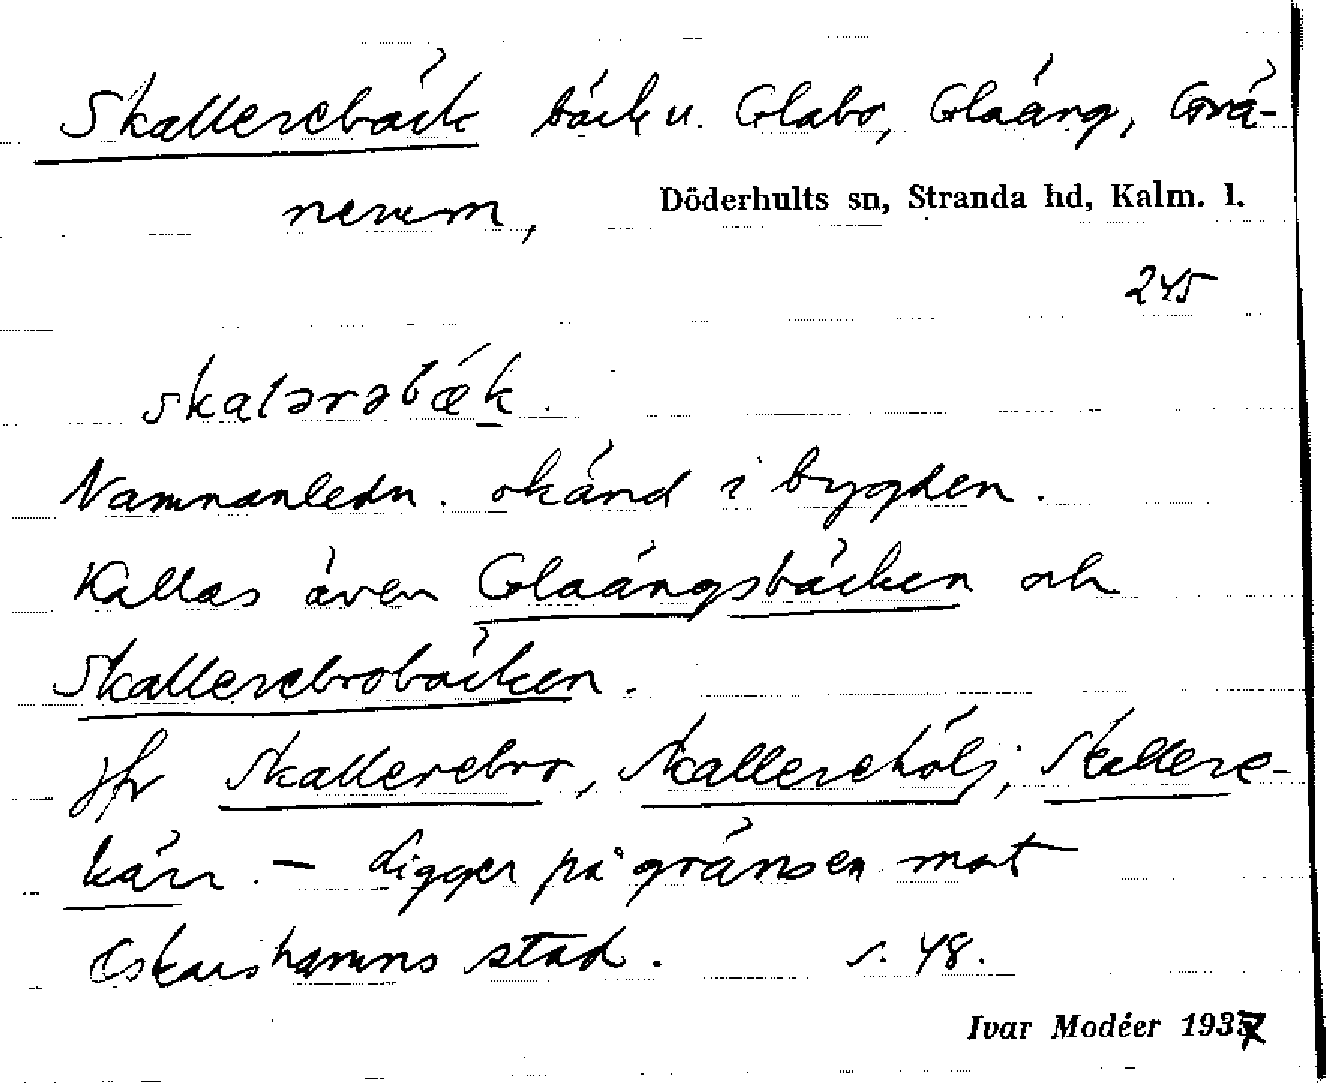 Skallerebäck bäck u. Glabo, Glaäng, Grä-
nerum,
Döderhults sn, Stranda hd, Kalm. l.
245
skalərəbæk.
Namnanledn. okänd i bygden.
Kallas även Glaängsbäcken och
Skallerebrobäcken.
jfr Skallerebro, Skallerehölj, Skallere-
kärr. – Ligger på gränsen mot
Oskarshamns stad. s. 48.
Ivar Modéer 1937